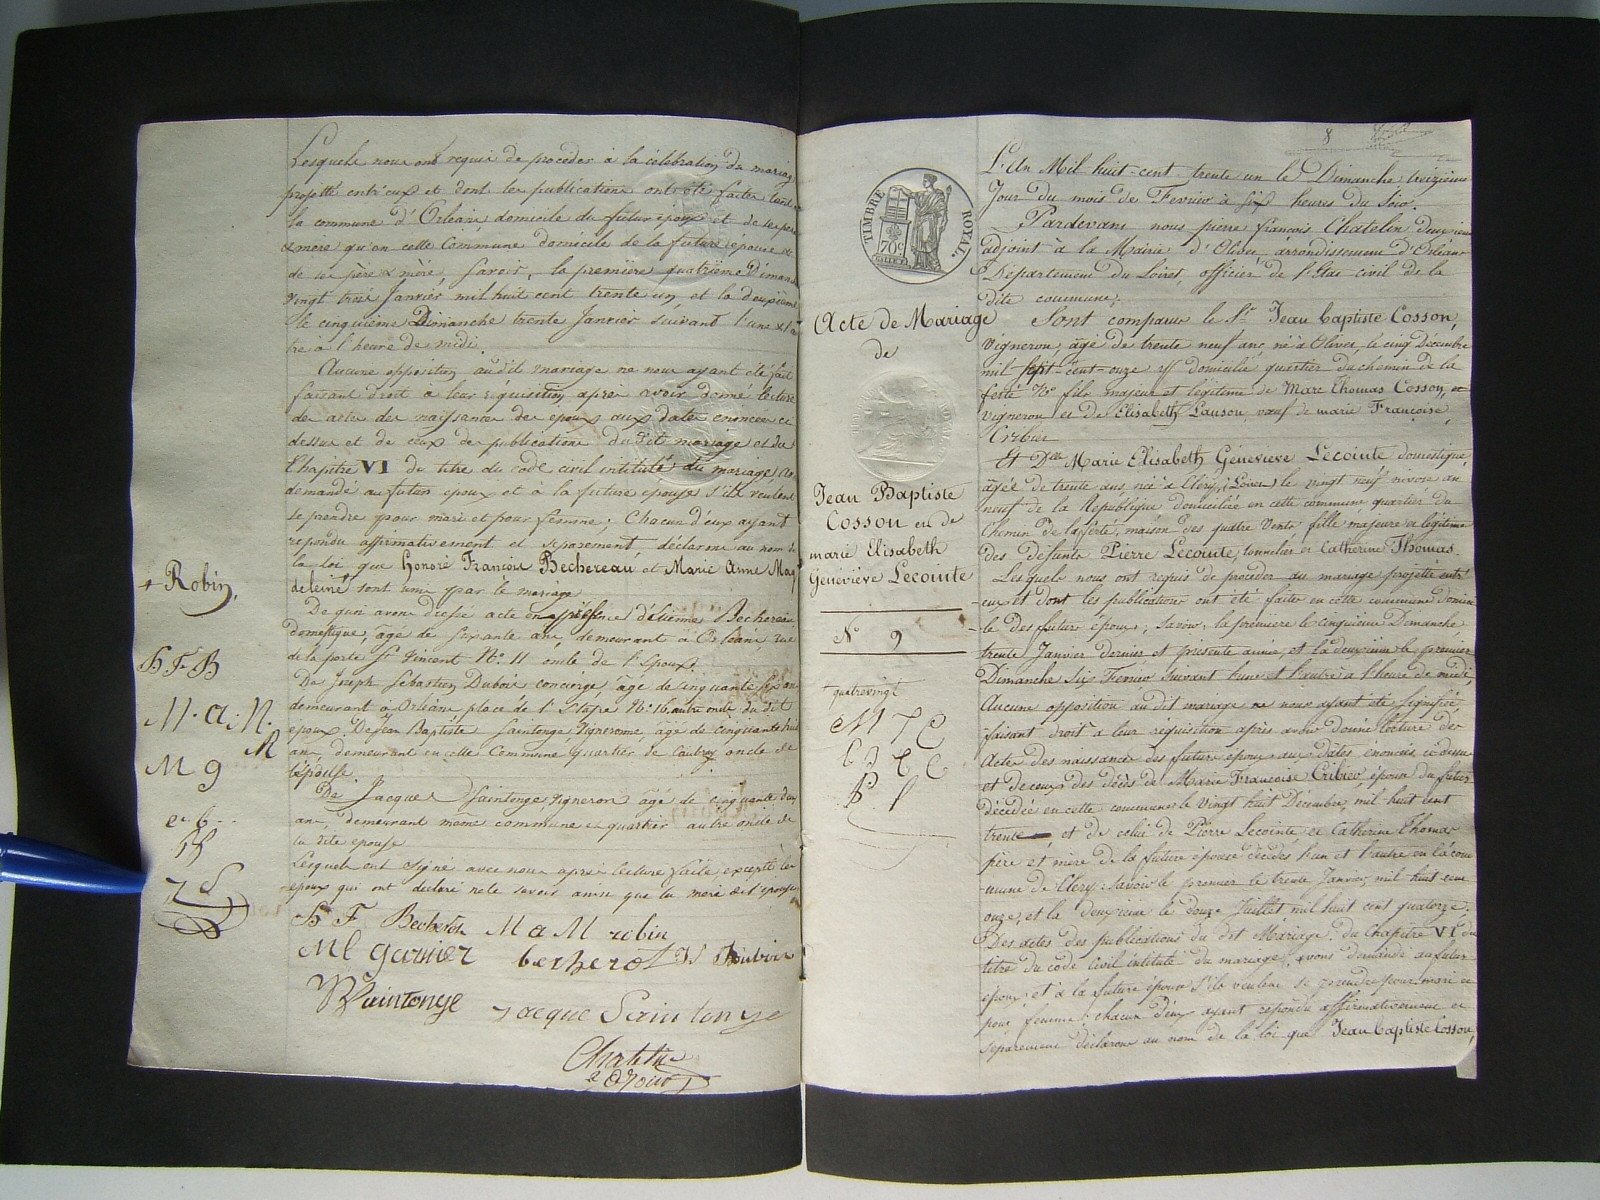 Lesquels nous ont requis de proceder à la célébration du mariage
projetté entr'eux et dont les publications ont été faites tant
la commune d'Orléans, domicile du futur époux et de ses père
& mère qu'en cette Commune domicile de la future épouse et
de ses père & mère, savoir, la première quatrième Dimanche
vingt trois Janvier mil huit cent trente un et la deuxième
le cinquième Dimanche trente Janvier suivant l'une & l'au
tre à l'heure de midi.
Aucune opposition audit mariage ne nous ayant été fait
faisant droit à leur réquisition après avoir donné lecture
des actes de naissance des époux aux dates énoncées ci
dessus et de ceux de publications du dit mariage et du
Chapitre VI du titre du code civil intitulé du mariage,
demandé au futur époux et à la future épouse s'ils veulent
se prendre pour mari et pour femme; Chacun d'eux ayant
repondu affirmativement et séparement, déclarons au nom de
la loi que Honoré François Bechereau et Marie Anne Mag
deleine sont unis par le mariage
+ Robin,
De quoi avons dressé acte en présence d'étienne Bechereau
domestique, âgé de soixante ans, demeurant à Orléans, rue
de la porte St Vincent N° 11 oncle de l'époux.
De Joseph Sébastien Dubois concierge, âgé de cinquante six ans
demeurant à Orléans place de l'Etape N° 16 autre oncle du dit
époux. De Jean Baptiste Saintonge, Vigneronne, âgé de cinquante huit
ans demeurant en cette Commune quartier de Caubray oncle de
l'épouse.
De Jacques Saintonge, vigneron âgé de cinquante deux
ans, demeurant même commune et quartier autre oncle de
la dite épouse
Lesquels ont signé avec nous après lecture faite excepté les
époux qui ont declaré ne le savoir ainsi que la mère de l'épouse
H F B
M. a. M.
M
M g
e. b.
H F Becherot M a M robin
Ml garnier becherot JS Duboix
Saintonge Jacque Saintonge
Chatelin
adjoint
8
TIMBRE ROYAL.
70c
L'An Mil huit-cent-trente un le Dimanche treizieme
Jour du mois de Fevrier à six heures du Soir.
Pardevant nous pierre françois Chatelin deuxieme
adjoint à la Mairie d'Olivet arrondissement d'Orléans
Departement du Loiret, officier de l'Etat civil de la
dite commune;
Acte de Mariage
de
Jean Baptiste
Cosson et de
marie Elisabeth
Geneviève Lecointe
N° 9
quatrevingt
M T C
Sont comparus le Sr Jean baptiste Cosson,
Vigneron, âgé de trente neuf ans, né à Olivet, le cinq Décembre
mil sept cent-onze y domicilié quartier du chemin de la
ferté fils majeur et légitime de Marc Thomas Cosson,
vigneron et de Elisabeth Lauson, veuf de marie Françoise
Cribier
Et Delle Marie Elisabeth Génévieve Lecointe domestique,
âgée de trente ans, née à Clery, (Loiret) le vingt neuf nivose an
neuf de la République domiciliée en cette commune, quartier du
Chemin de la ferté, maison des quatre Vents fille majeure & légitime
des defunts Pierre Lecointe, tonnelier et Catherine Thomas.
Lesquels nous ont requis de proceder au mariage projetté entr'
eux et dont les publications ont été faites en cette commune domici
le des futurs époux; savoir: la premiere le cinquieme Dimanche
trente Janvier dernier et presente année, et la deuxieme le premier
Dimanche Six Fevrier suivant l'une et l'autre à l'heure de midi,
Aucune opposition au dit mariage ne nous ayant été signifiée,
faisant droit à leur réquisition après avoir donné lecture des
Actes des naissances des futurs époux aux dates énoncées ci-dessus
et de ceux des décès de Marie Françoise Cribier, épouse du futur
décédée en cette commune le vingt huit Décembre, mil huit cent
trente et de celui de Pierre Lecointe et Catherine Thomas
père et mère de la future épouse décédés l'un et l'autre en la com
mune de Clery: savoir le premier le trente Janvier, mil huit cent
onze, et la deuxieme le douze Juillet mil huit cent quatorze.
Des actes des publications du dit Mariage: du Chapitre VI du
titre du code civil intitulé du mariage, avons demandé au futur
époux et à la future épouse s'ils veulent se prendre pour mari et
pour femme: chacun d'eux ayant repondu affirmativement et
separement déclarons au nom de la loi que Jean baptiste Cosson,